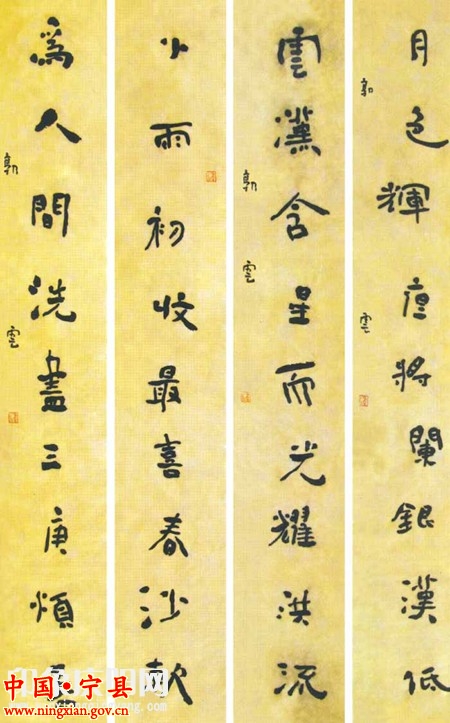 月色輝將闌銀漢低
郭雲
雲漢含星而光耀洪流
郭雲
小雨初收最喜春沙軟
爲人間洗盡三庚煩
郭雲
中国·宁县
www.ningxian.gov.cn